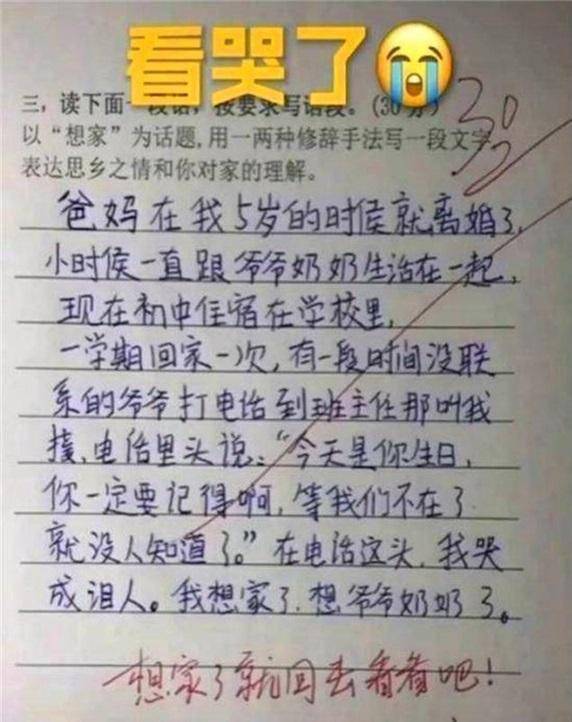 看哭了
三，读下面一段话，按要求写话段。(30分)
以“想家”为话题,用一两种修辞手法写一段文字
表达思乡之情和你对家的理解。
30
爸妈在我5岁的时侯就离婚了,
小时侯一直跟爷爷奶奶生活在一起,
现在初中住宿在学校里,
一学期回家一次,有一段时间没联
系的爷爷打电话到班主任那叫我
接,电话里头说:“今天是你生日,
你一定要记得啊,等我们不在了
就没人知道了。”在电话这头,我哭
成泪人。我想家了,想爷爷奶奶了。
想家了就回去看看吧!